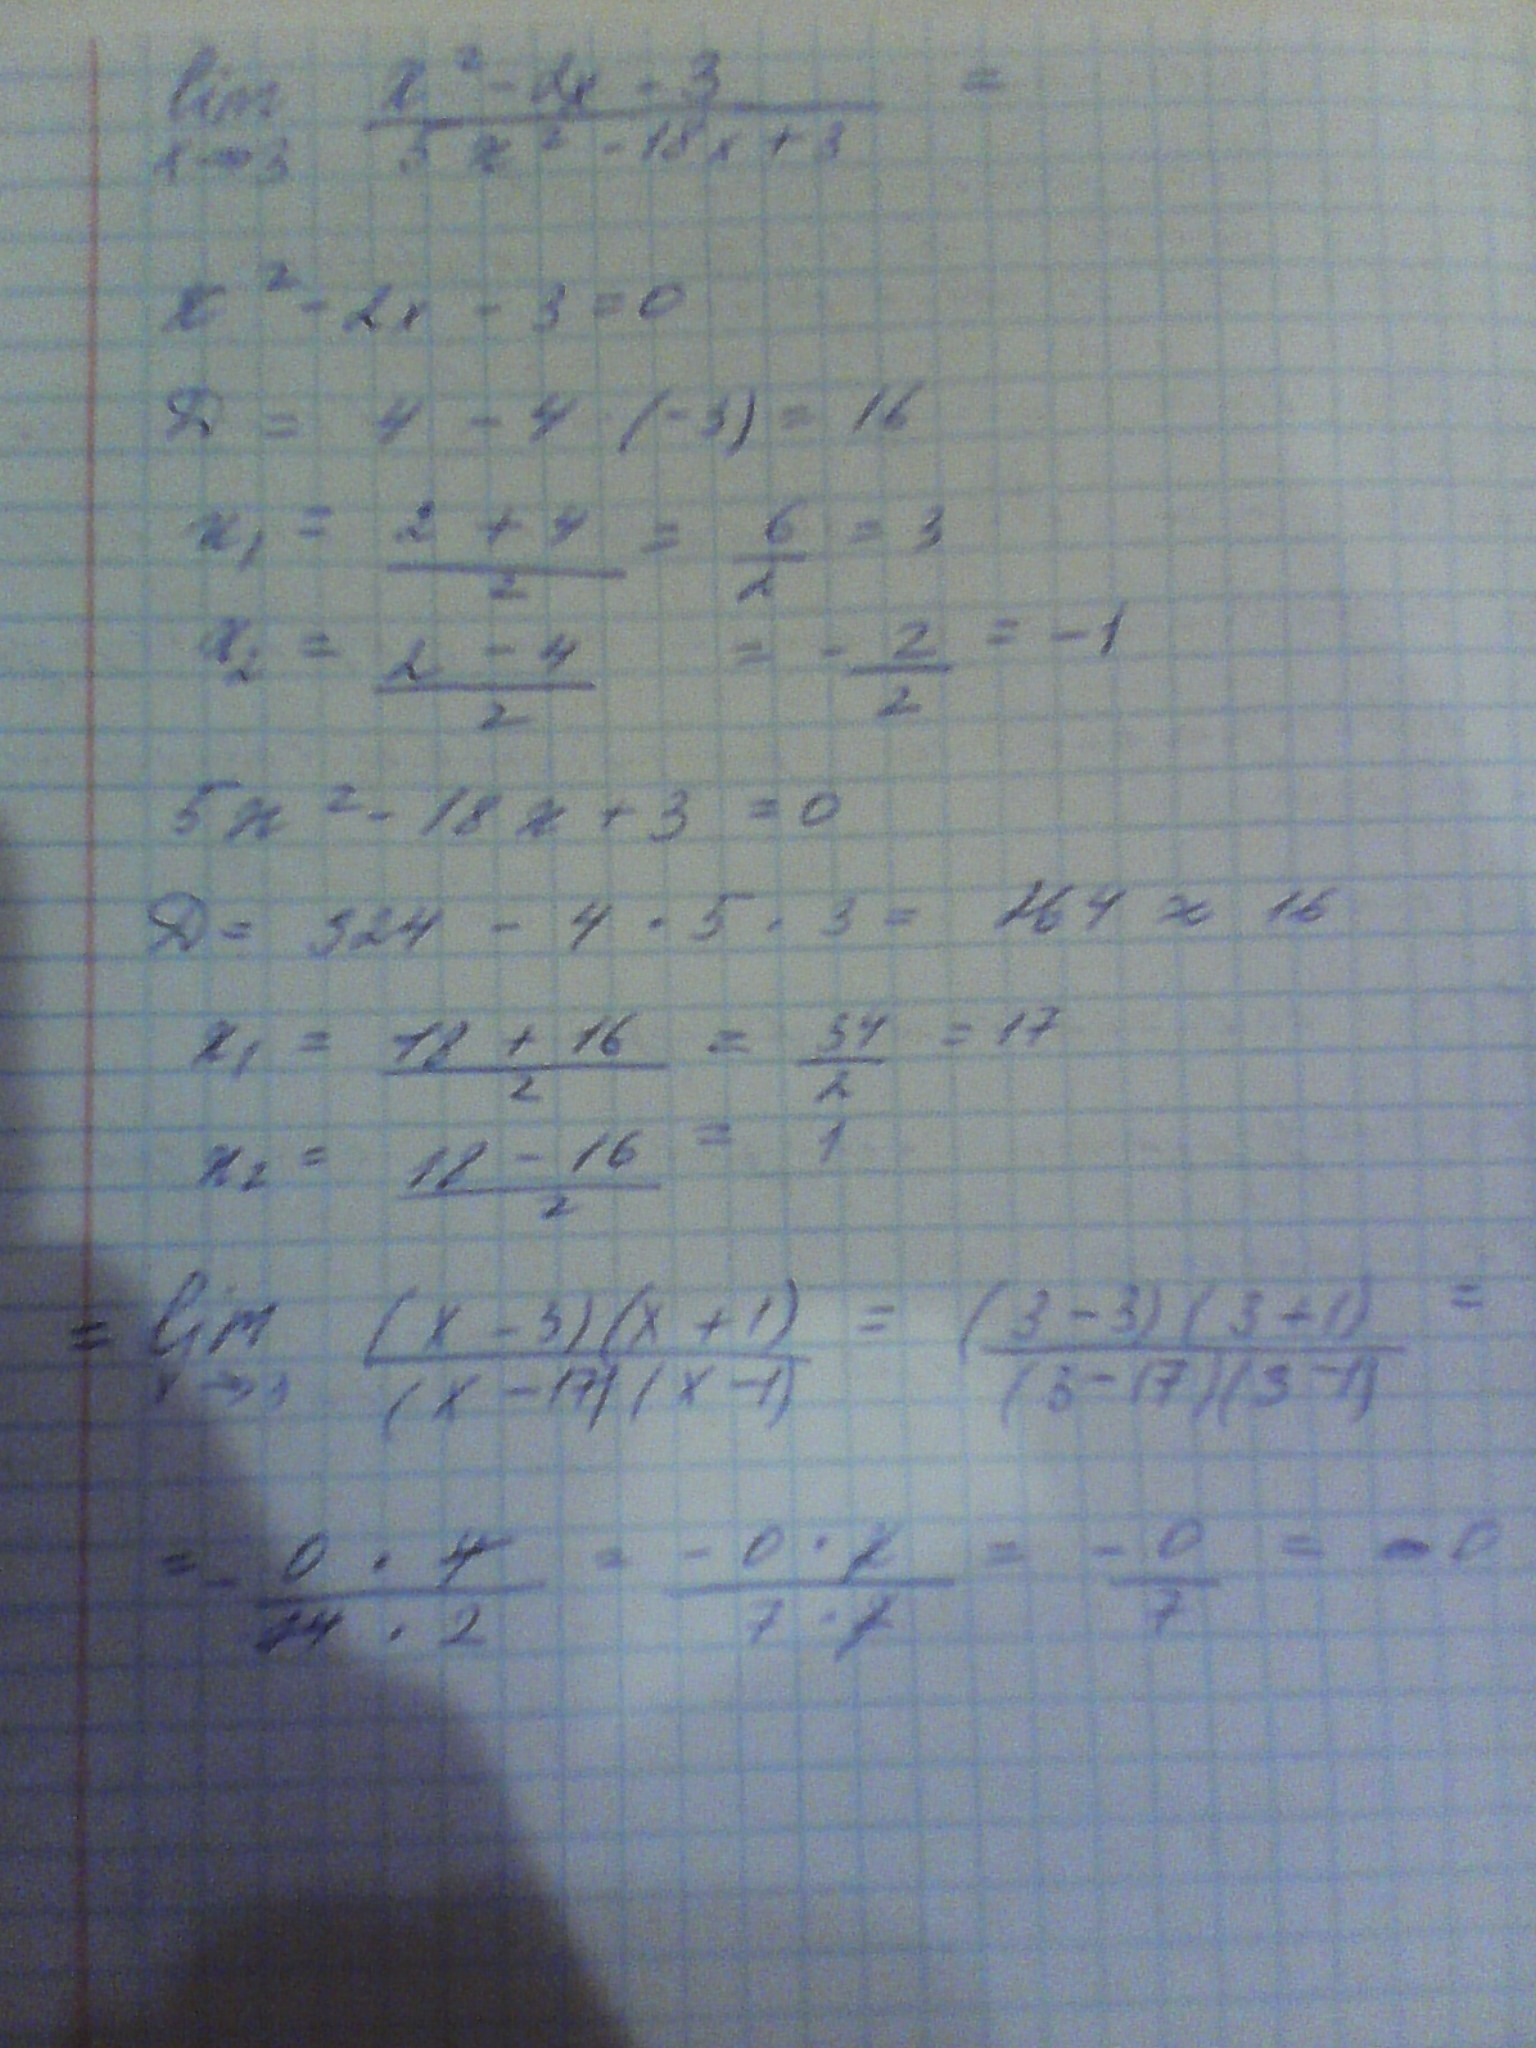 lim x² - 2x - 3 =
x→3 5x² - 18x + 3
x² - 2x - 3 = 0
D = 4 - 4 · (-3) = 16
x₁ = 2 + 4 / 2 = 6 / 2 = 3
x₂ = 2 - 4 / 2 = - 2 / 2 = -1
5x² - 18x + 3 = 0
D = 324 - 4 · 5 · 3 = 264 ≈ 16
x₁ = 18 + 16 / 2 = 34 / 2 = 17
x₂ = 18 - 16 / 2 = 1
= lim (x - 3)(x + 1) = (3 - 3)(3 + 1) =
x→3 (x - 17)(x - 1) (3 - 17)(3 - 1)
= - 0 · 4 / 14 · 2 = - 0 · 2 / 7 · 2 = - 0 / 7 = - 0